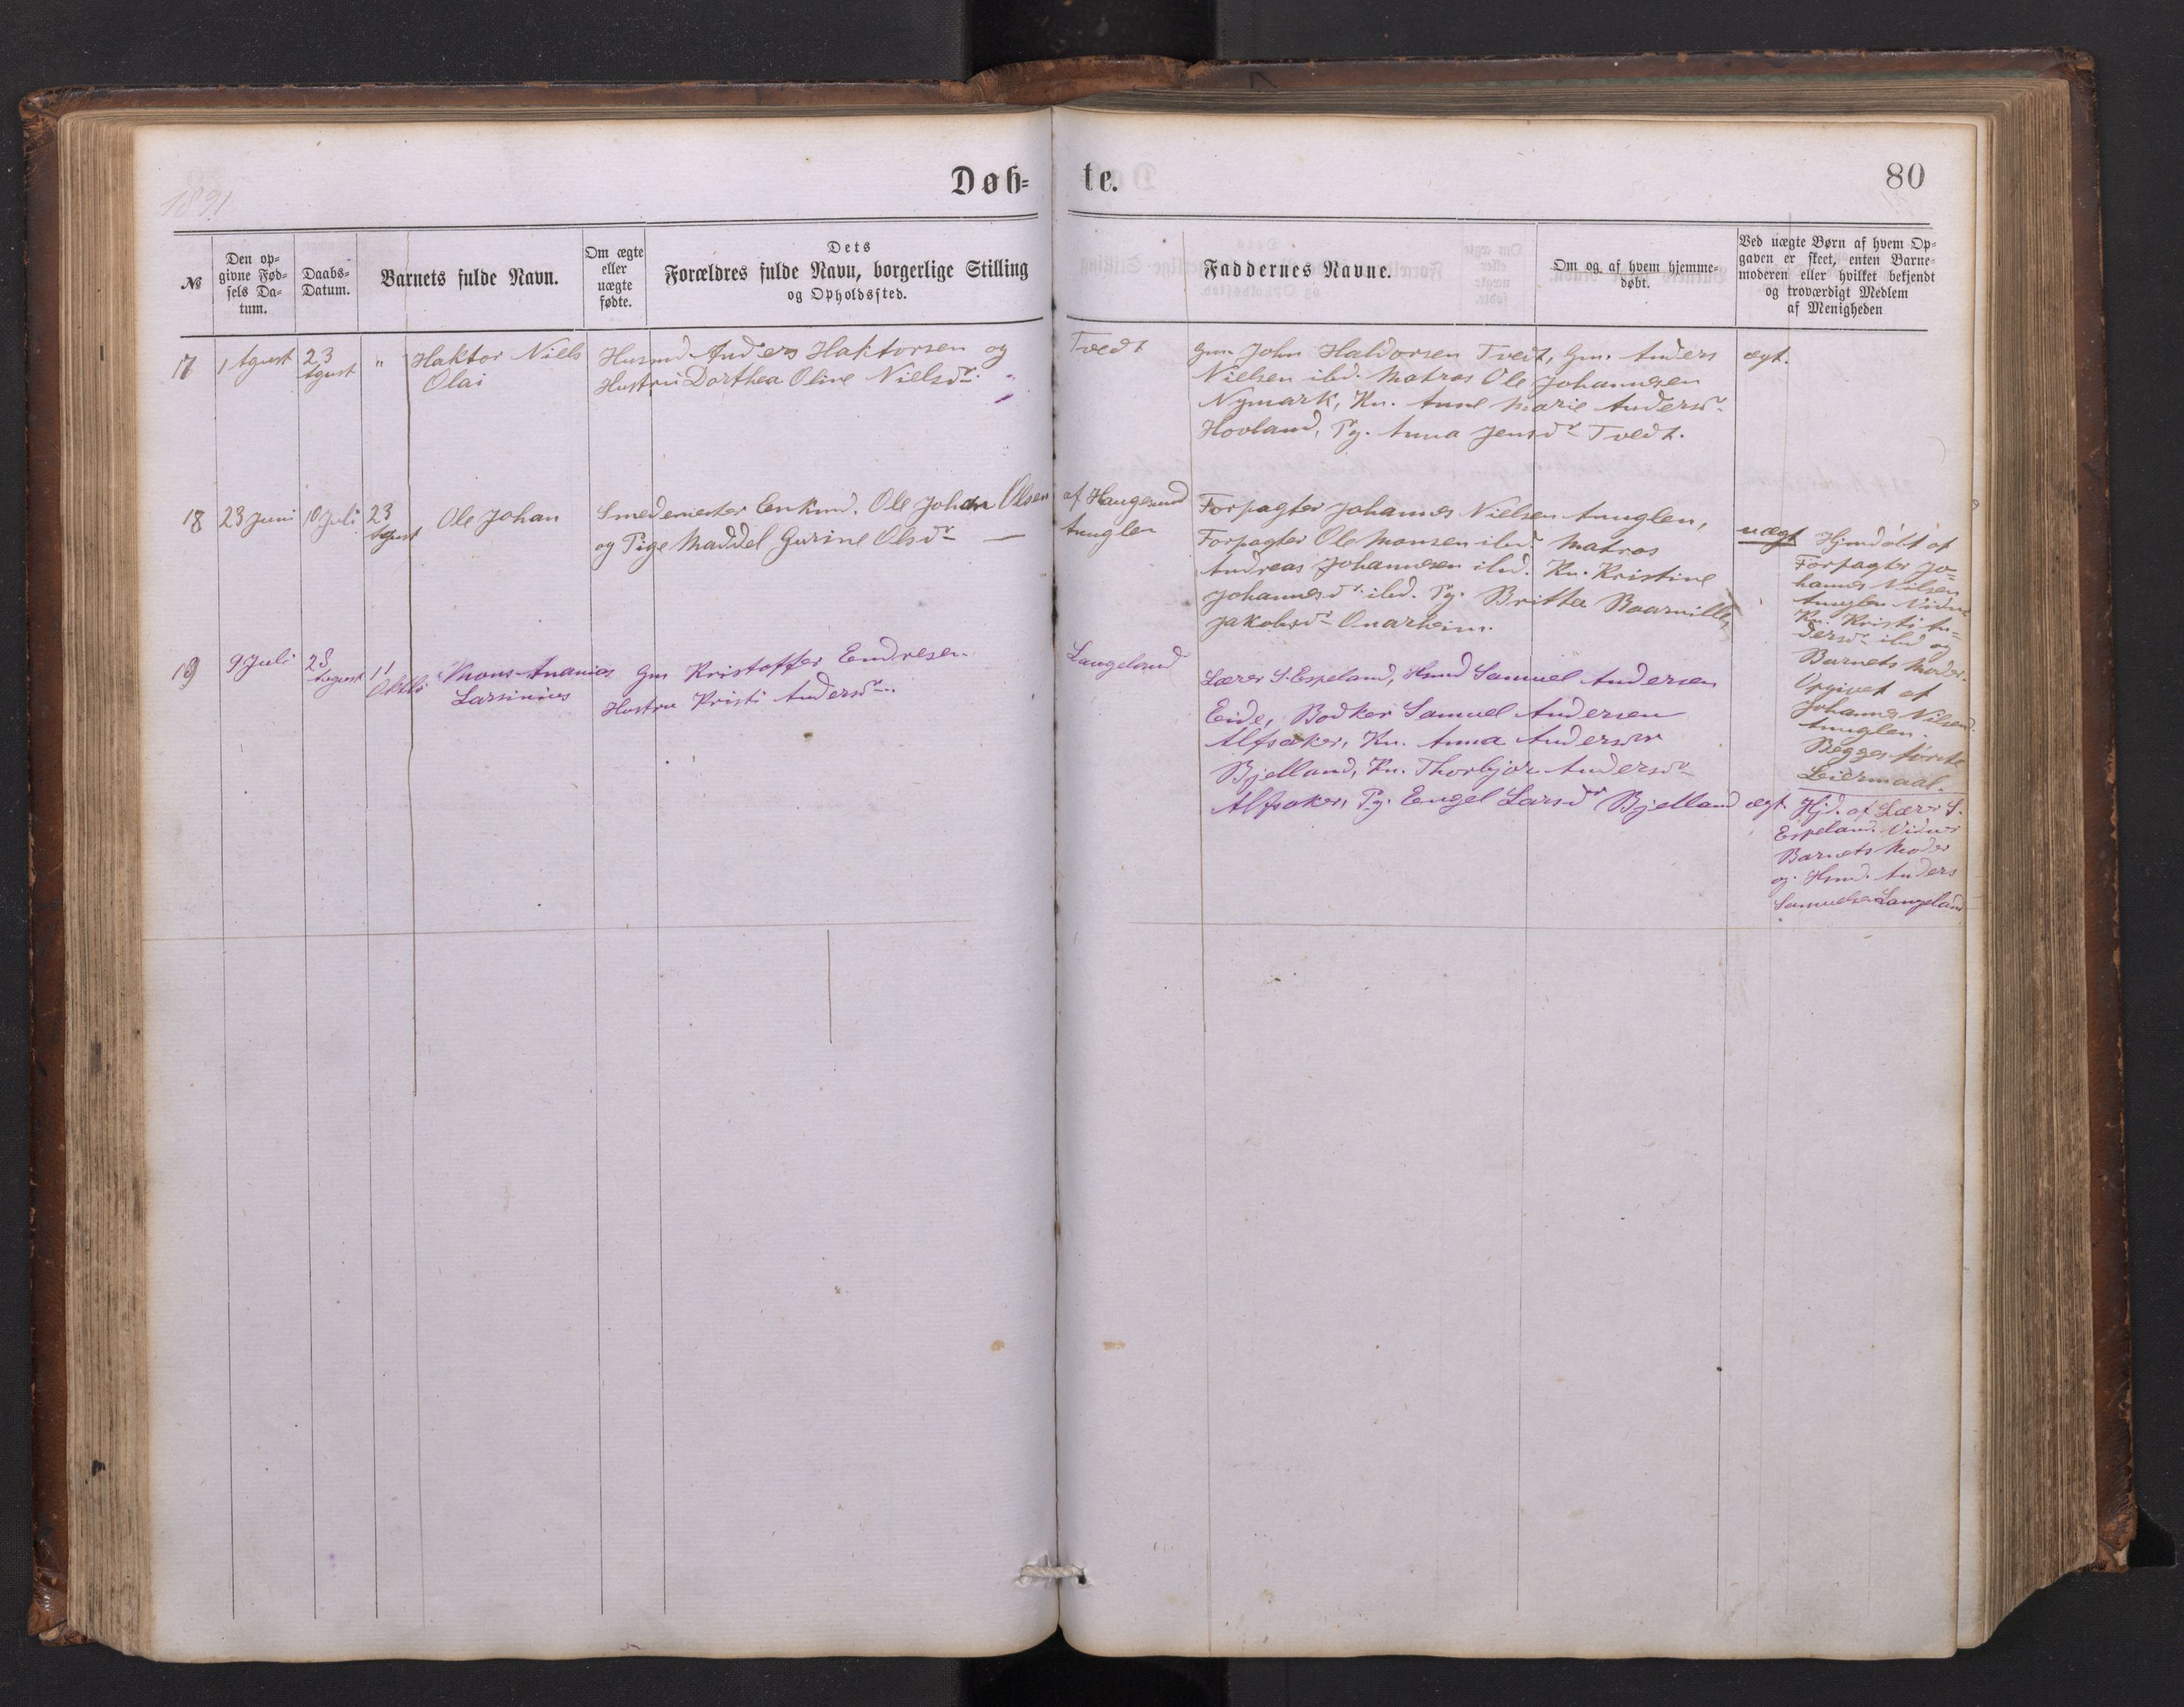 1891
Døb-
te.
80
№
Den op-
givne Fød-
sels Da-
tum.
Daabs-
Datum.
Barnets fulde Navn.
Om ægte
eller
uægte
fødte.
Dets
Forældres fulde Navn, borgerlige Stilling
og Opholdssted.
Faddernes Navne.
Om og af hvem hjemme-
døbt.
Ved uægte Børn af hvem Op-
gaven er skeet, enten Barne-
moderen eller hvilket bekjendt
og troværdigt Medlem
af Menigheden
17
1 Agust
23
Agust
"
Haktor Niels
Olai
Husmd Anders Haktorsen og
Hustru Dorthea Oline Nielsdr.
Tvedt
Gm. John Haldorsen Tvedt, Gm. Anders
Nielsen ibd. Matros Ole Johannesen
Nymark, Kn. Anne Marie Andersdr
Hovland, Pg. Anna Jensdr Tvedt.
ægt.
18
23 Juni
10 Juli
23
Agust
Ole Johan
Smedemester Enkmd. Ole Johan Olsen
og Pige Maddel Gurine Olsdr —
af Haugesund
Anuglen
Forpagter Johannes Nielsen Anuglen,
Forpagter Ole Monsen ibd. Matros
Andreas Johannesen ibd. Kn. Kristine
Johannesdr ibd. Pg. Britha
Jakobsdr Onarheim.
uægt
Hjmdøbt af
Forpagter Jo-
hannes Nilsen
Anuglen
Kn. Kristi An-
dersdr ibd og
Barnets Moder.
Opgivet af
Johannes Nilsen
Anuglen.
Begges første
Leiermaal.
19
9 Juli
28
August
11
Oktbr
Mons Ananias
Larsinius
Gm Kristoffer Endresen
Hustru Kristi Andersdr.
Langeland
Lærer S. Espeland, Hsmd Samuel Andersen
Eide, Bødker Samuel Andersen
Alfsaker, Kn. Anna Andersdr
Bjelland, Kn. Thorbjør Andersdr
Alfsaker, Pg. Engel Larsdr Bjelland
ægt.
Hjd. af Lærer S.
Espeland. Vidner
Barnets Moder
og Hsmd. Anders
Samuelsen Langeland